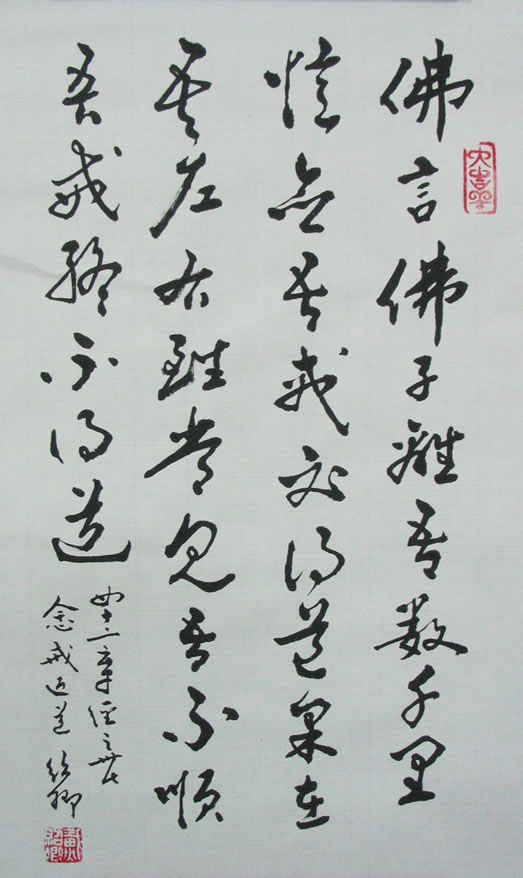 佛言佛子離吾數千里
憶念吾戒必得道果在
吾左右雖常見吾不順
吾戒終不得道
四十二章經之卅七
念戒近道 紹卿